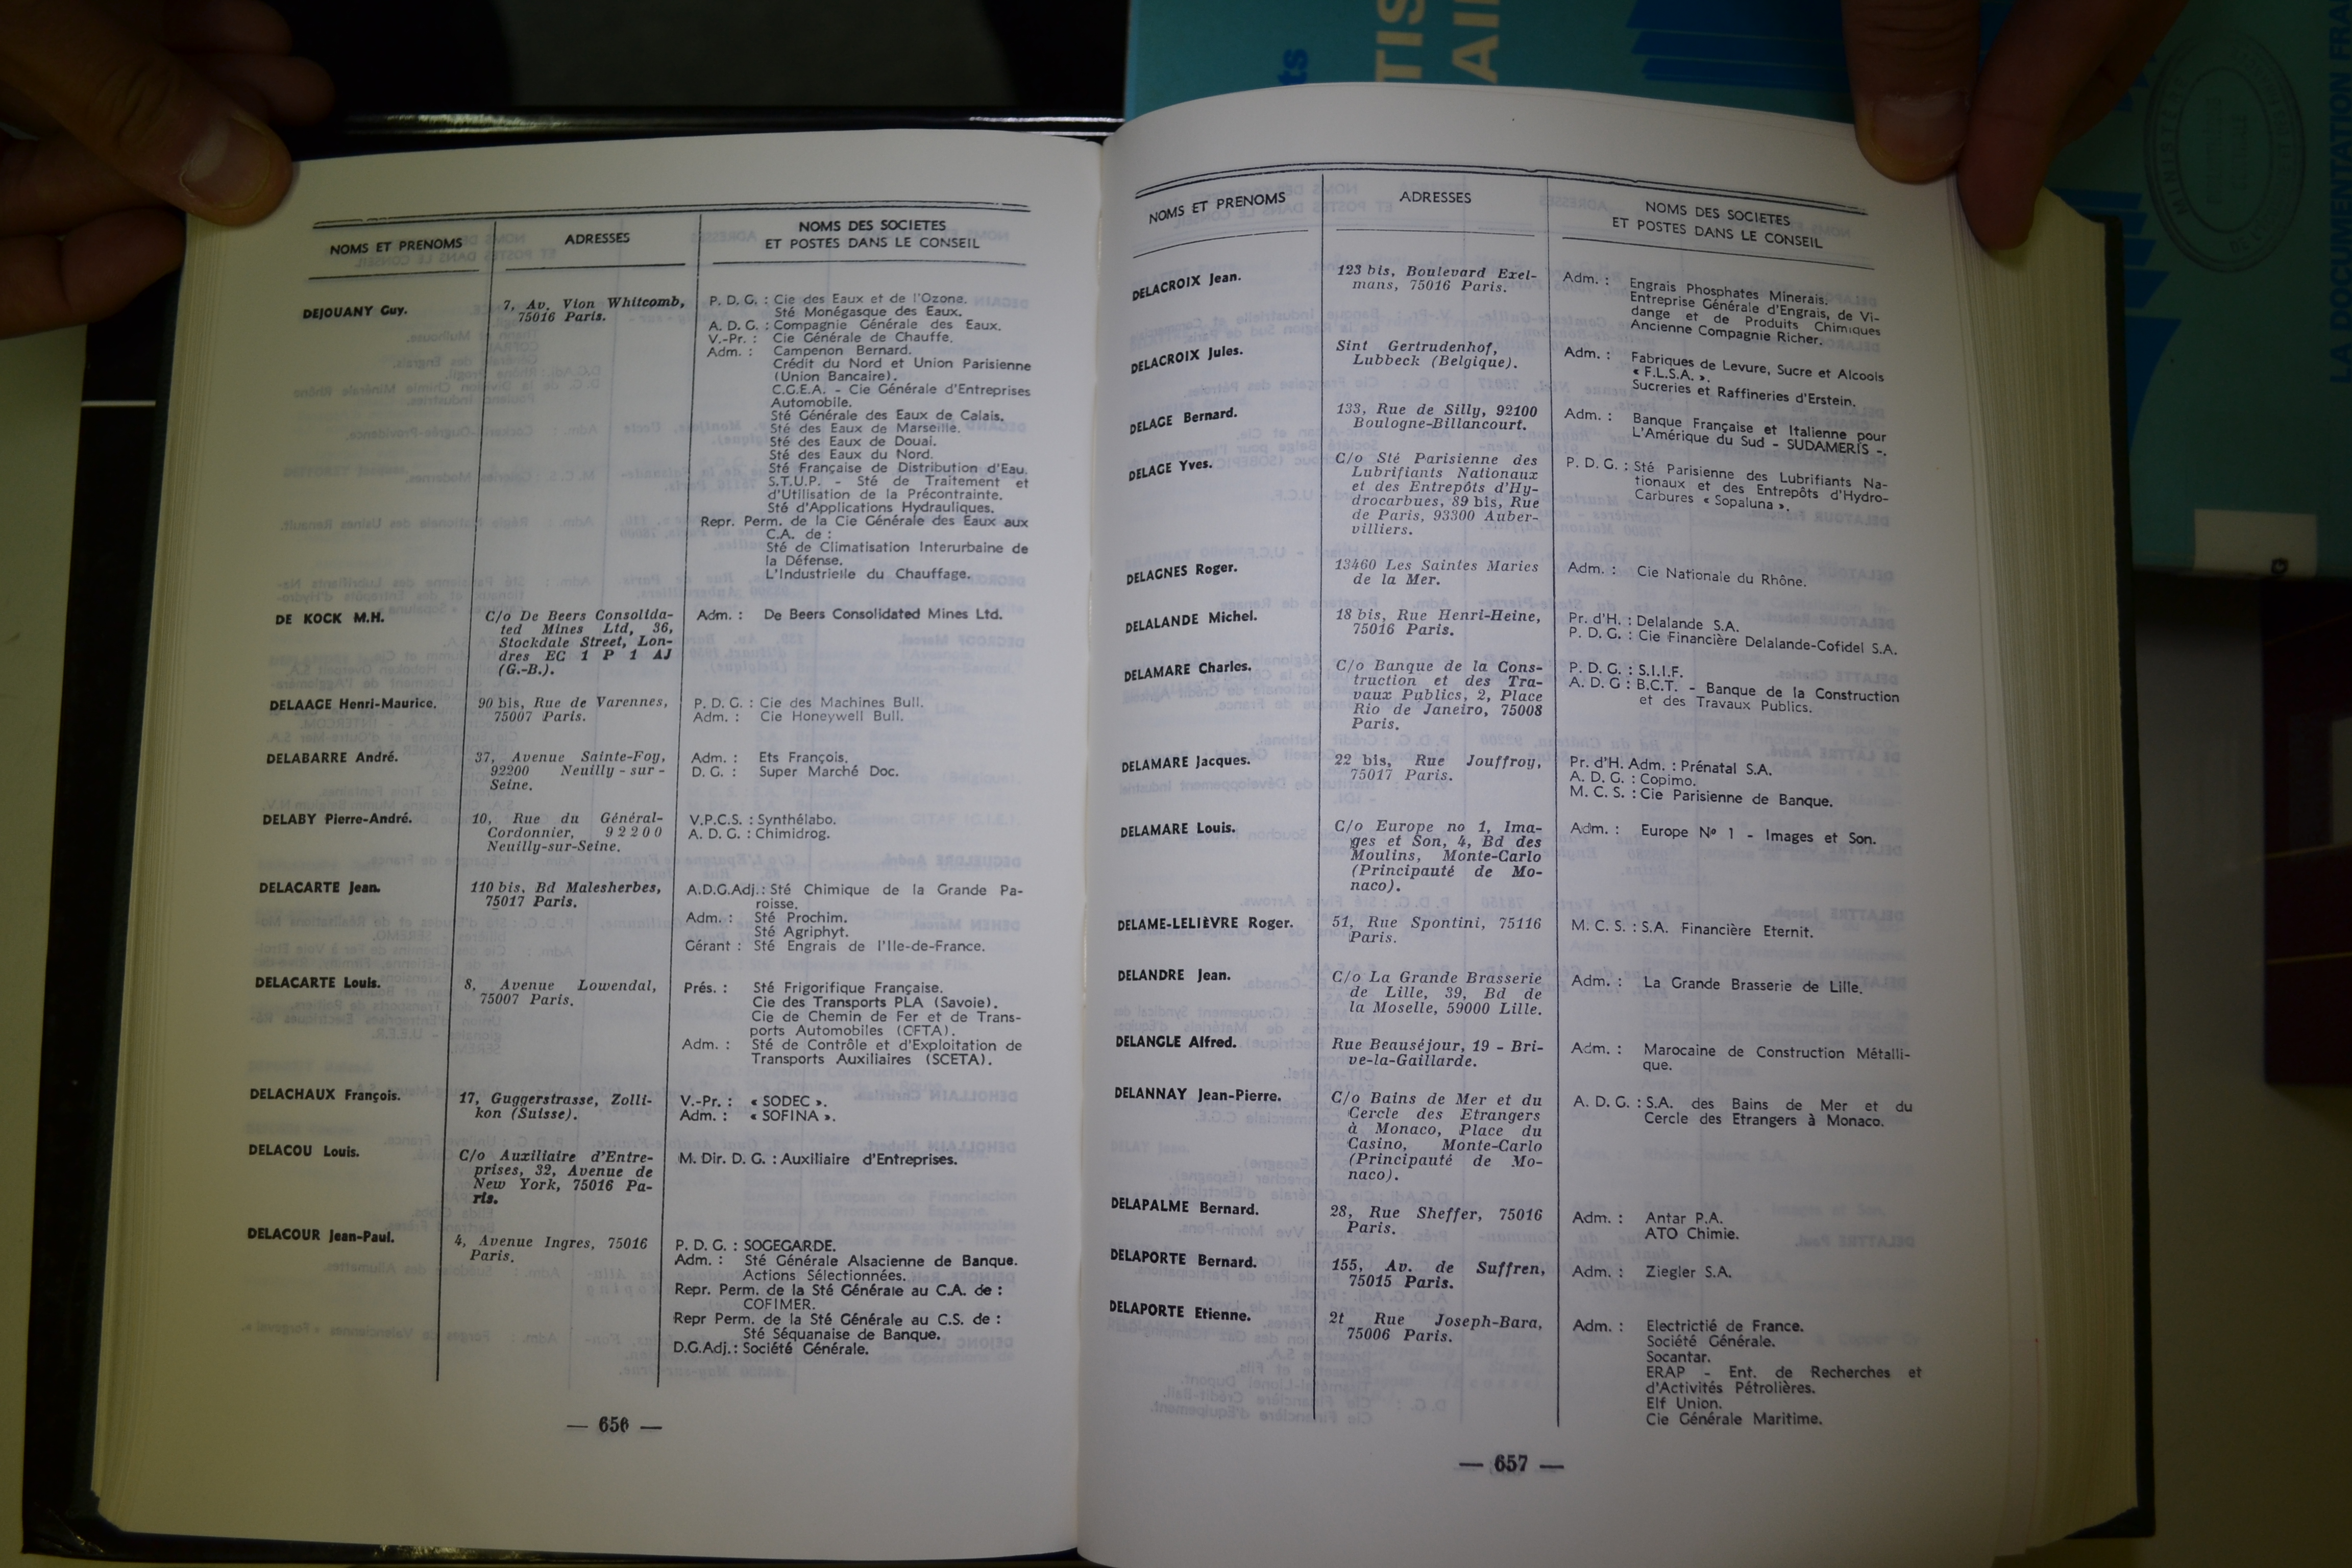 NOMS ET PRENOMS
ADRESSES
NOMS DES SOCIETES
ET POSTES DANS LE CONSEIL
DEJOUANY Guy.
7, Av. Vion Whitcomb,
75016 Paris.
P. D. G. : Cie des Eaux et de l'Ozone.
Sté Monégasque des Eaux.
A. D. G. : Compagnie Générale des Eaux.
V.-Pr. : Cie Générale de Chauffe.
Adm. : Campenon Bernard.
Crédit du Nord et Union Parisienne
(Union Bancaire).
C.G.E.A. - Cie Générale d'Entreprises
Automobile.
Sté Générale des Eaux de Calais.
Sté des Eaux de Marseille.
Sté des Eaux de Douai.
Sté des Eaux du Nord.
Sté Française de Distribution d'Eau.
S.T.U.P. - Sté de Traitement et
d'Utilisation de la Précontrainte.
Sté d'Applications Hydrauliques.
Repr. Perm. de la Cie Générale des Eaux aux
C.A. de :
Sté de Climatisation Interurbaine de
la Défense.
L'Industrielle du Chauffage.
DE KOCK M.H.
C/o De Beers Consolida-
ted Mines Ltd, 36,
Stockdale Street, Lon-
dres EC 1 P 1 AJ
(G.-B.).
Adm. : De Beers Consolidated Mines Ltd.
DELAAGE Henri-Maurice.
90 bis, Rue de Varennes,
75007 Paris.
P. D. G. : Cie des Machines Bull.
Adm. : Cie Honeywell Bull.
DELABARRE André.
37, Avenue Sainte-Foy,
92200 Neuilly - sur -
Seine.
Adm. : Ets François.
D. G. : Super Marché Doc.
DELABY Pierre-André.
10, Rue du Général-
Cordonnier, 92200
Neuilly-sur-Seine.
V.P.C.S. : Synthélabo.
A. D. G. : Chimidrog.
DELACARTE Jean.
110 bis, Bd Malesherbes,
75017 Paris.
A.D.G.Adj.: Sté Chimique de la Grande Pa-
roisse.
Adm. : Sté Prochim.
Sté Agriphyt.
Gérant : Sté Engrais de l'Ile-de-France.
DELACARTE Louis.
8, Avenue Lowendal,
75007 Paris.
Prés. : Sté Frigorifique Française.
Cie des Transports PLA (Savoie).
Cie de Chemin de Fer et de Trans-
ports Automobiles (CFTA).
Adm. : Sté de Contrôle et d'Exploitation de
Transports Auxiliaires (SCETA).
DELACHAUX François.
17, Guggerstrasse, Zolli-
kon (Suisse).
V.-Pr. : « SODEC ».
Adm. : « SOFINA ».
DELACOU Louis.
C/o Auxiliaire d'Entre-
prises, 32, Avenue de
New York, 75016 Pa-
ris.
M. Dir. D. G. : Auxiliaire d'Entreprises.
DELACOUR Jean-Paul.
4, Avenue Ingres, 75016
Paris.
P. D. G. : SOGEGARDE.
Adm. : Sté Générale Alsacienne de Banque.
Actions Sélectionnées.
Repr. Perm. de la Sté Générale au C.A. de :
COFIMER.
Repr Perm. de la Sté Générale au C.S. de :
Sté Séquanaise de Banque.
D.G.Adj.: Société Générale.
— 656 —
NOMS ET PRENOMS
ADRESSES
NOMS DES SOCIETES
ET POSTES DANS LE CONSEIL
DELACROIX Jean.
123 bis, Boulevard Exel-
mans, 75016 Paris.
Adm. : Engrais Phosphates Minerais.
Entreprise Générale d'Engrais, de Vi-
dange et de Produits Chimiques
Ancienne Compagnie Richer.
DELACROIX Jules.
Sint Gertrudenhof,
Lubbeck (Belgique).
Adm. : Fabriques de Levure, Sucre et Alcools
« F.L.S.A. ».
Sucreries et Raffineries d'Erstein.
DELAGE Bernard.
133, Rue de Silly, 92100
Boulogne-Billancourt.
Adm. : Banque Française et Italienne pour
L'Amérique du Sud - SUDAMERIS -.
DELAGE Yves.
C/o Sté Parisienne des
Lubrifiants Nationaux
et des Entrepôts d'Hy-
drocarbues, 89 bis, Rue
de Paris, 93300 Auber-
villiers.
P. D. G. : Sté Parisienne des Lubrifiants Na-
tionaux et des Entrepôts d'Hydro-
Carbures « Sopaluna ».
DELAGNES Roger.
13460 Les Saintes Maries
de la Mer.
Adm. : Cie Nationale du Rhône.
DELALANDE Michel.
18 bis, Rue Henri-Heine,
75016 Paris.
Pr. d'H. : Delalande S.A.
P. D. G. : Cie Financière Delalande-Cofidel S.A.
DELAMARE Charles.
C/o Banque de la Cons-
truction et des Tra-
vaux Publics, 2, Place
Rio de Janeiro, 75008
Paris.
P. D. G. : S.I.I.F.
A. D. G : B.C.T. - Banque de la Construction
et des Travaux Publics.
DELAMARE Jacques.
22 bis, Rue Jouffroy,
75017 Paris.
Pr. d'H. Adm. : Prénatal S.A.
A. D. G. : Copimo.
M. C. S. : Cie Parisienne de Banque.
DELAMARE Louis.
C/o Europe no 1, Ima-
ges et Son, 4, Bd des
Moulins, Monte-Carlo
(Principauté de Mo-
naco).
Adm. : Europe Nº 1 - Images et Son.
DELAME-LELIÈVRE Roger.
51, Rue Spontini, 75116
Paris.
M. C. S. : S.A. Financière Eternit.
DELANDRE Jean.
C/o La Grande Brasserie
de Lille, 39, Bd de
la Moselle, 59000 Lille.
Adm. : La Grande Brasserie de Lille.
DELANGLE Alfred.
Rue Beauséjour, 19 - Bri-
ve-la-Gaillarde.
Adm. : Marocaine de Construction Métalli-
que.
DELANNAY Jean-Pierre.
C/o Bains de Mer et du
Cercle des Etrangers
à Monaco, Place du
Casino, Monte-Carlo
(Principauté de Mo-
naco).
A. D. G. : S.A. des Bains de Mer et du
Cercle des Etrangers à Monaco.
DELAPALME Bernard.
28, Rue Sheffer, 75016
Paris.
Adm. : Antar P.A.
ATO Chimie.
DELAPORTE Bernard.
155, Av. de Suffren,
75015 Paris.
Adm. : Ziegler S.A.
DELAPORTE Etienne.
2t Rue Joseph-Bara,
75006 Paris.
Adm. : Electrictié de France.
Société Générale.
Socantar.
ERAP - Ent. de Recherches et
d'Activités Pétrolières.
Elf Union.
Cie Générale Maritime.
— 657 —
LA DOCUMENTATION FRA